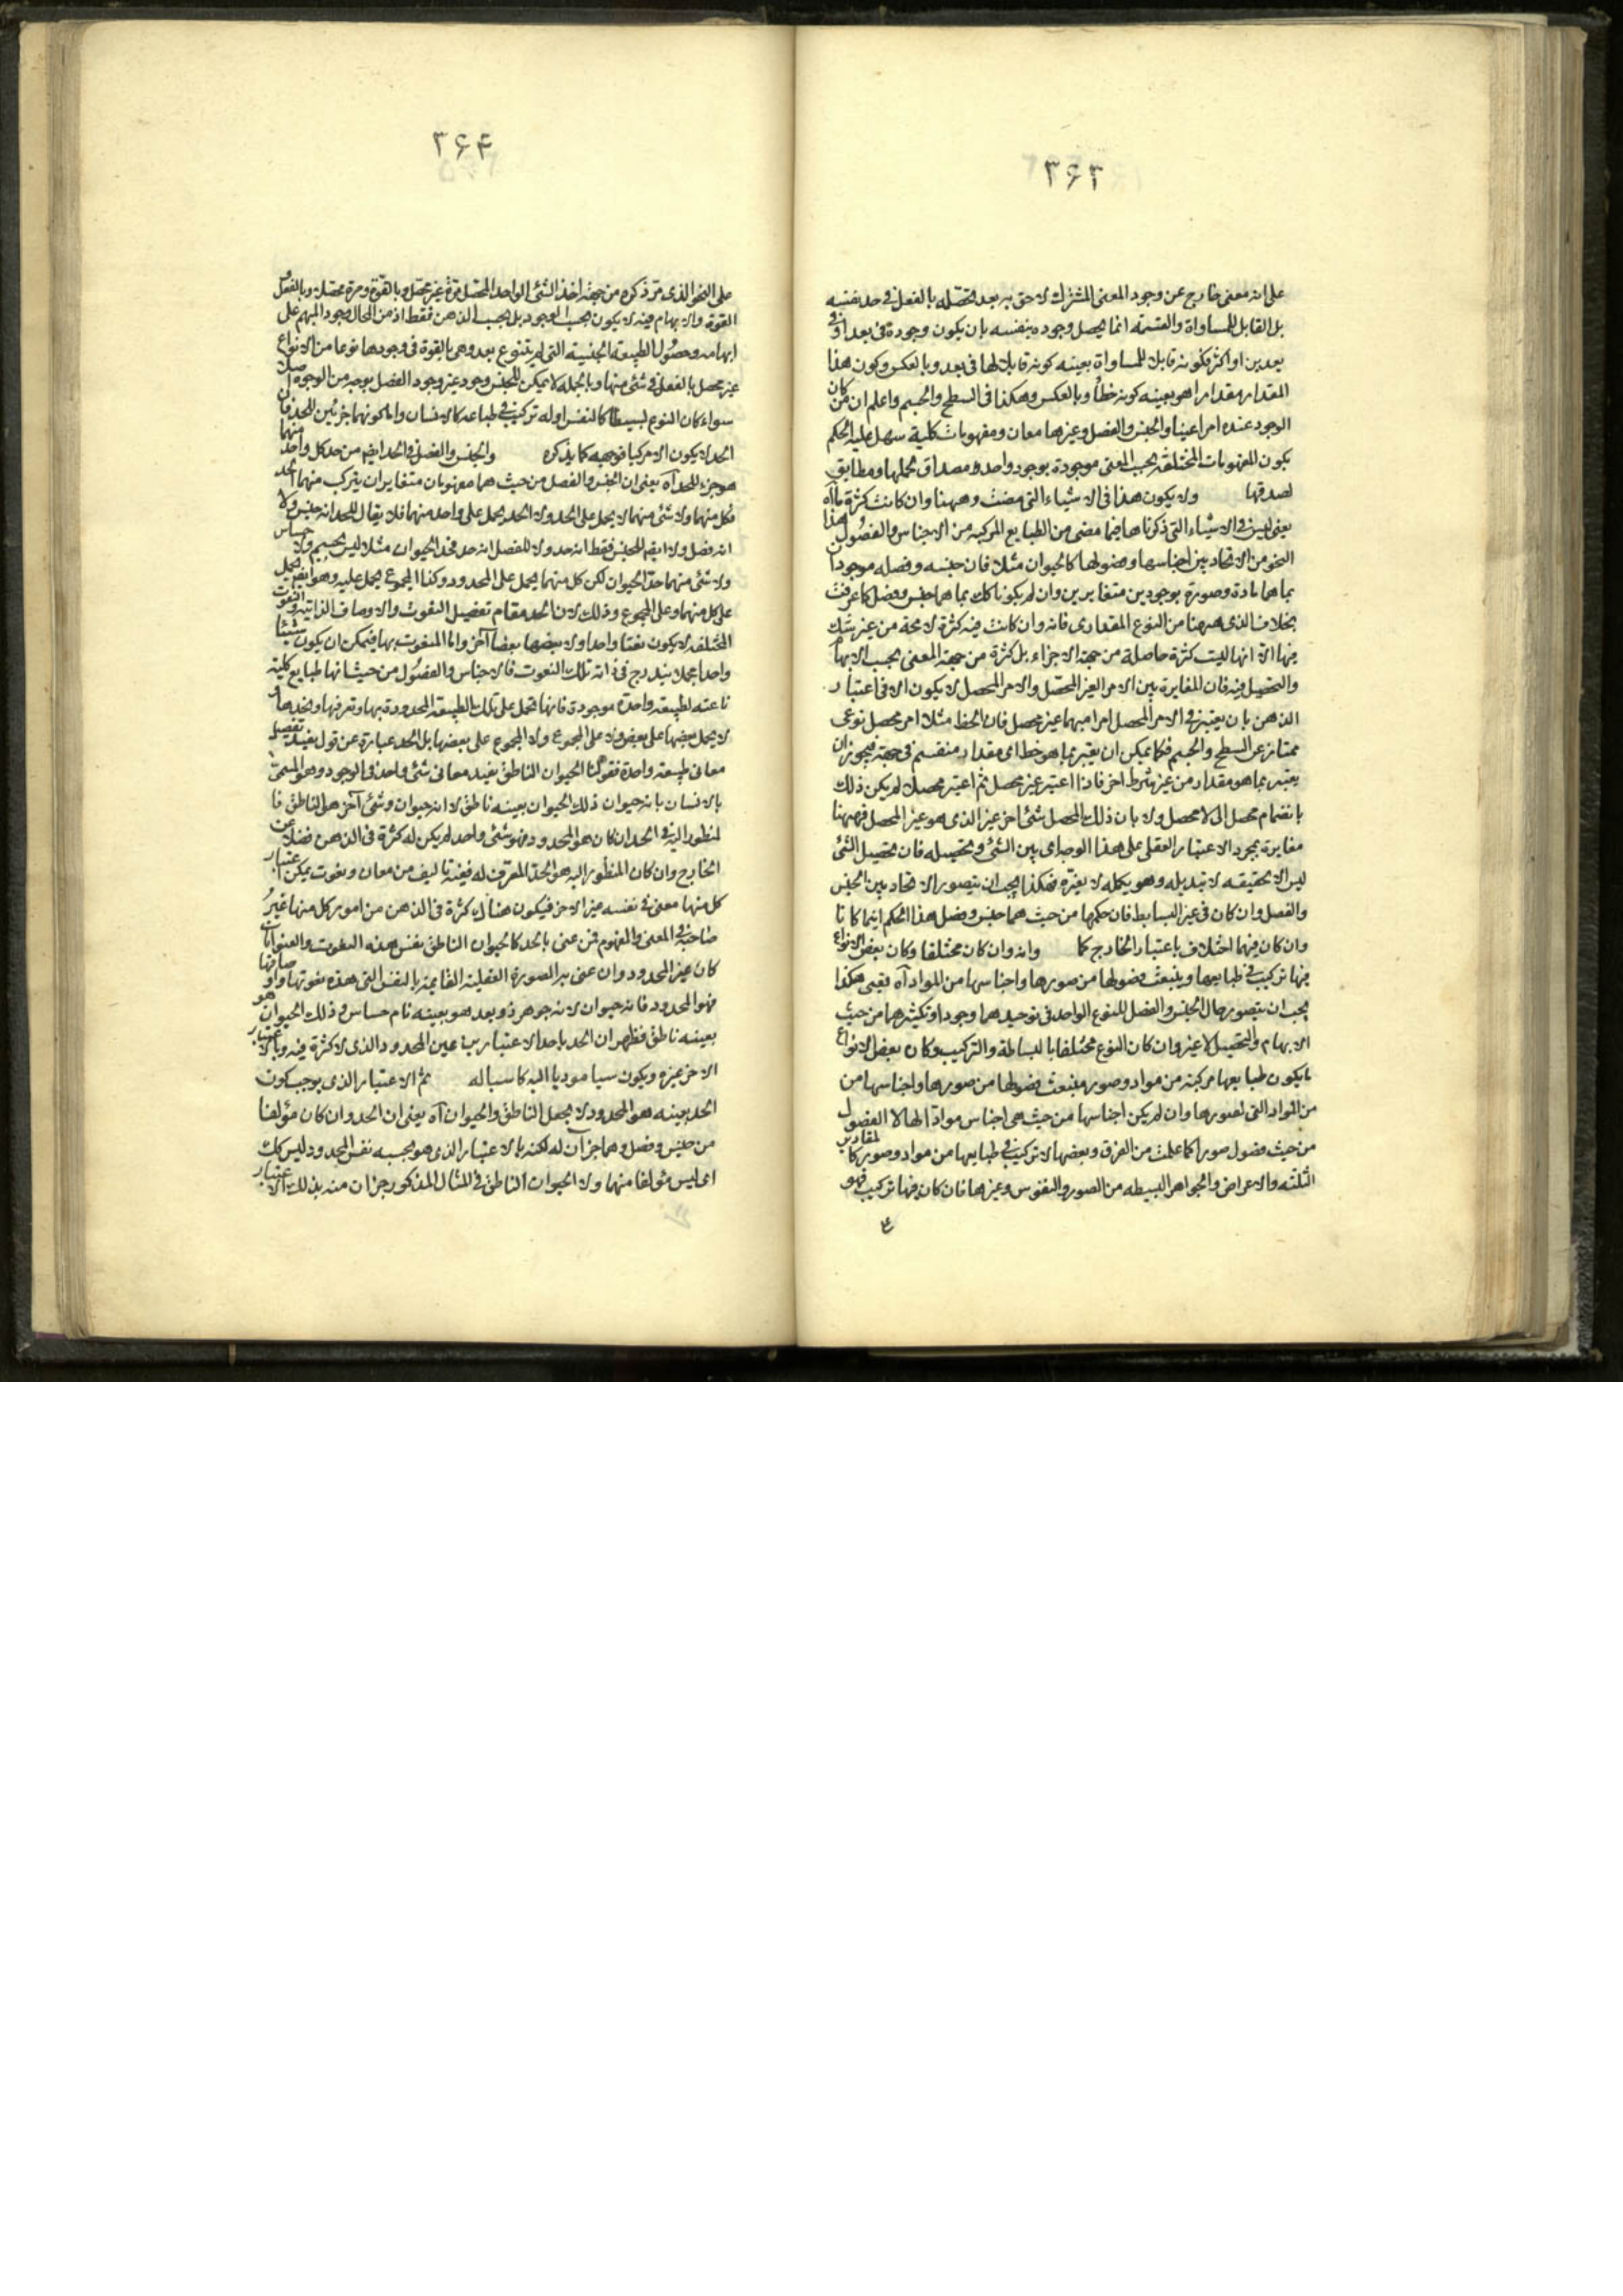 ۳۶۳
على انه معنى خارج عن وجود المعنى المشترك لاحق به بعد تحصّله بالفعل فى حد نفسه
بل القابل للمساواة والقسمة انما يحصل وجوده بنفسه بان يكون وجوده فى بعد او فى
بعدين او اكثر فكونه قابلا للمساواة بعينه كونه قابلا لها فى بعد وبالعكس وكون هذا
المقدار مقدارا هو بعينه كونه خطاً وبالعكس وهكذا فى السطح والجسم واعلم ان من كان
الوجود عنده امرا عينيا والجنس والفصل وغيرهما معان ومفهومات كلية سهل عليه الحكم
بكون المفهومات المختلفة بحسب المعنى موجودة بوجود واحد هو مصداق لحملها ومطابق
لصدقها ولا يكون هذا فى الاشياء التى مضت وههنا وان كانت كثرة ما آه
يعنى ليس فى الاشياء التى ذكرناها فيما مضى من الطبايع المركبة من الاجناس والفصول هذا
النحو من الاتحاد بين اجناسها وفصولها كالحيوان مثلا فان جنسه وفصله موجودان
بما هما مادة وصورة بوجودين متغايرين وان لم يكونا كك بما هما جنس وفصل كما عرفت
بخلاف الذى ههنا من النوع المقدارى فانه وان كانت فيه كثرة لا محة من غير شك
فيها الا انها ليست كثرة حاصلة من جهة الاجزاء بل كثرة من جهة المعنى بحسب الابهام
والتحصيل فيه فان المغايرة بين الامر الغير المحصّل والامر المحصل لا يكون الا فى اعتبار
الذهن بان يعتبر فى الامر المحصل امرا مبهما غير محصل فان الخط مثلا امر محصل نوعى
ممتاز عن السطح والجسم فكما يمكن ان يعتبر بما هو خط اى مقدار منقسم فى جهة فيجوز ان
يعتبر بما هو مقدار من غير شرط اخر فاذا اعتبر غير محصل ثم اعتبر محصلا لم يكن ذلك
بانضمام محصل الى لا محصل ولا بان ذلك المحصل شئ اخر غير الذى هو غير المحصل فههنا
مغايرة بمجرد الاعتبار العقلى على هذا الوجه اى بين الشئ وتحصيله فان تحصيل الشئ
ليس الا تحقيقه لا تبديله وهو يكمله لا يغيّره فهكذا يجب ان يتصور الاتحاد بين الجنس
والفصل وان كان فى غير البسايط فان حكمها من حيث هما جنس وفصل هذا الحكم اينما كانا
وان كان فيهما اختلاف باعتبار الخارج كما وانه وان كان مختلفا وكان بعض الانواع
فيها تركيب فى طبايعها وينبعث فصولها من صورها واجناسها من المواد آه يعنى هكذا
يجب ان يتصور حال الجنس والفصل للنوع الواحد فى توحيدهما وجودا وتكثيرهما من حيث
الابهام والتحصيل لا غير وان كان النوع مختلفا بالبساطة والتركيب وكان بعض الانواع
ما يكون طبايعها مركبة من مواد وصور منبعث فصولها من صورها واجناسها من
من المواد التى لصورها وان لم يكن اجناسها من حيث هى اجناس مواد لها لا الفصول
من حيث فصول صورا كما علمت من الفرق وبعضها لا تركيب فى طبايعها من مواد وصور كالمقادير
الثلثة والاعراض والجواهر البسيطه من الصور والنفوس وغيرها فان كان فيها تركيب فهو
۳۶۴
على النحو الذى مرّ ذكره من جهة اخذ الشئ الواحد المحصّل مرّة غير محصّل وبالقوة ومرة محصلا وبالفعل و
القوة والابهام فيه لا يكون بحسب الوجود بل بحسب الذهن فقط اذ من المحال وجود المبهم على
ابهامه وحصول الطبيعة الجنسية التى لم يتنوع بعد وهى بالقوة فى وجودها نوعا من الانواع
غير محصل بالفعل فى شئ منها وبالجملة لا يمكن للجنس وجود غير وجود الفصل بوجه من الوجوه اصلا
سواء كان النوع بسيطاً كالنفس او له تركيب فى طباعه كالانسان واما كونهما جزئين للحد فان
الحد لا يكون الا مركبا فوجهه كما يذكره والجنس والفصل فى الحد ايضم من حد كل واحد منهما
هو جزء للحد آه يعنى ان الجنس والفصل من حيث هما مفهومان متغايران يتركب منهما الحد
فكل منهما ولا شئ منهما لا يحمل على الحد ولا الحد يحمل على واحد منهما فلا يقال للحد انه جنس ولا
انه فصل ولا ايضم للجنس فقط انه حد ولا للفصل انه حد فحد الحيوان مثلا ليس بجسم ولا حساس
ولا شئ منهما حد الحيوان لكن كل منهما يحمل على المحدود وكذا المجموع يحمل عليه وهو ايضم يحمل
على كل منهما وعلى المجموع وذلك لان الحد مقام تفصيل النعوت والاوصاف الذاتية والنعوت
المختلفة لا يكون نعتا واحدا ولا بعضها بعضاً آخر واما المنعوت بها فيمكن ان يكون شيئا
واحدا مجملا يندرج فى ذاته تلك النعوت فالاجناس والفصول من حيث انها طبايع كلية
ناعته لطبيعة واحدة موجودة فانها تحمل على تلك الطبيعة المحدودة بها وتعرفها وتحدها و
لا يحمل بعضها على بعض ولا على المجموع ولا المجموع على بعضها بل الحد عبارة عن قول يفيد تفصيل
معانى طبيعة واحدة فقولنا الحيوان الناطق يفيد معانى شئ واحد فى الوجود وهو المسمى
بالانسان بانه حيوان ذلك الحيوان بعينه ناطق لا انه حيوان وشئ آخر هو الناطق فا
لمنظور اليه فى الحد ان كان هو المحدود فهو شئ واحد لم يكن له كثرة فى الذهن فضلا عن
الخارج وان كان المنظور اليه هو الحد المعرف له ففيه تاليف من معان ونعوت يمكن اعتبار
كل منها معنى فى نفسه غير الاخر فيكون هناك كثرة فى الذهن من امور كل منها غير
صاحبه فى المعنى والمفهوم فمن عنى بالحد كالحيوان الناطق نفس هذه النعوت والعنوانات
كان غير المحدود وان عنى به الصورة العقلية القايمة بالنفس التى هذه نعوتها واوصافها
فهو المحدود فانه حيوان لانه جوهر ذو بعد هو بعينه نام حساس وذلك الحيوان هو
بعينه ناطق فظهر ان الحد باحد الاعتبارين عين المحدود الذى لا كثرة فيه وبالاعتبار
الاخر غيره ويكون سببا موديا اليه كاسبا له ثم الاعتبار الذى يوجب كون
الحد بعينه هو المحدود لا يجعل الناطق والحيوان آه يعنى ان الحد وان كان مؤلفا
من جنس وفصل وهما جزآن له لكنه بالاعتبار الذى هو بحسبه نفس المحدود ليس كك
اى ليس مؤلفا منهما ولا الحيوان الناطق فى المثال المذكور جزآن منه بذلك الاعتبار